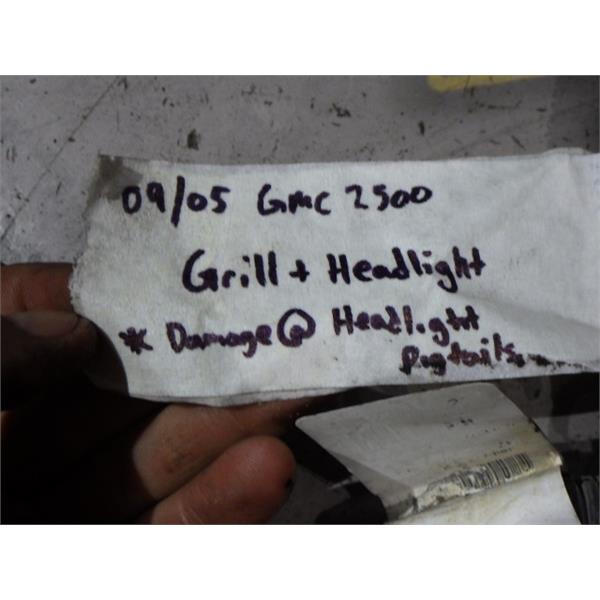 09/05 GMC 2500
Grill + Headlight
* Damage @ Headlight
pigtails.